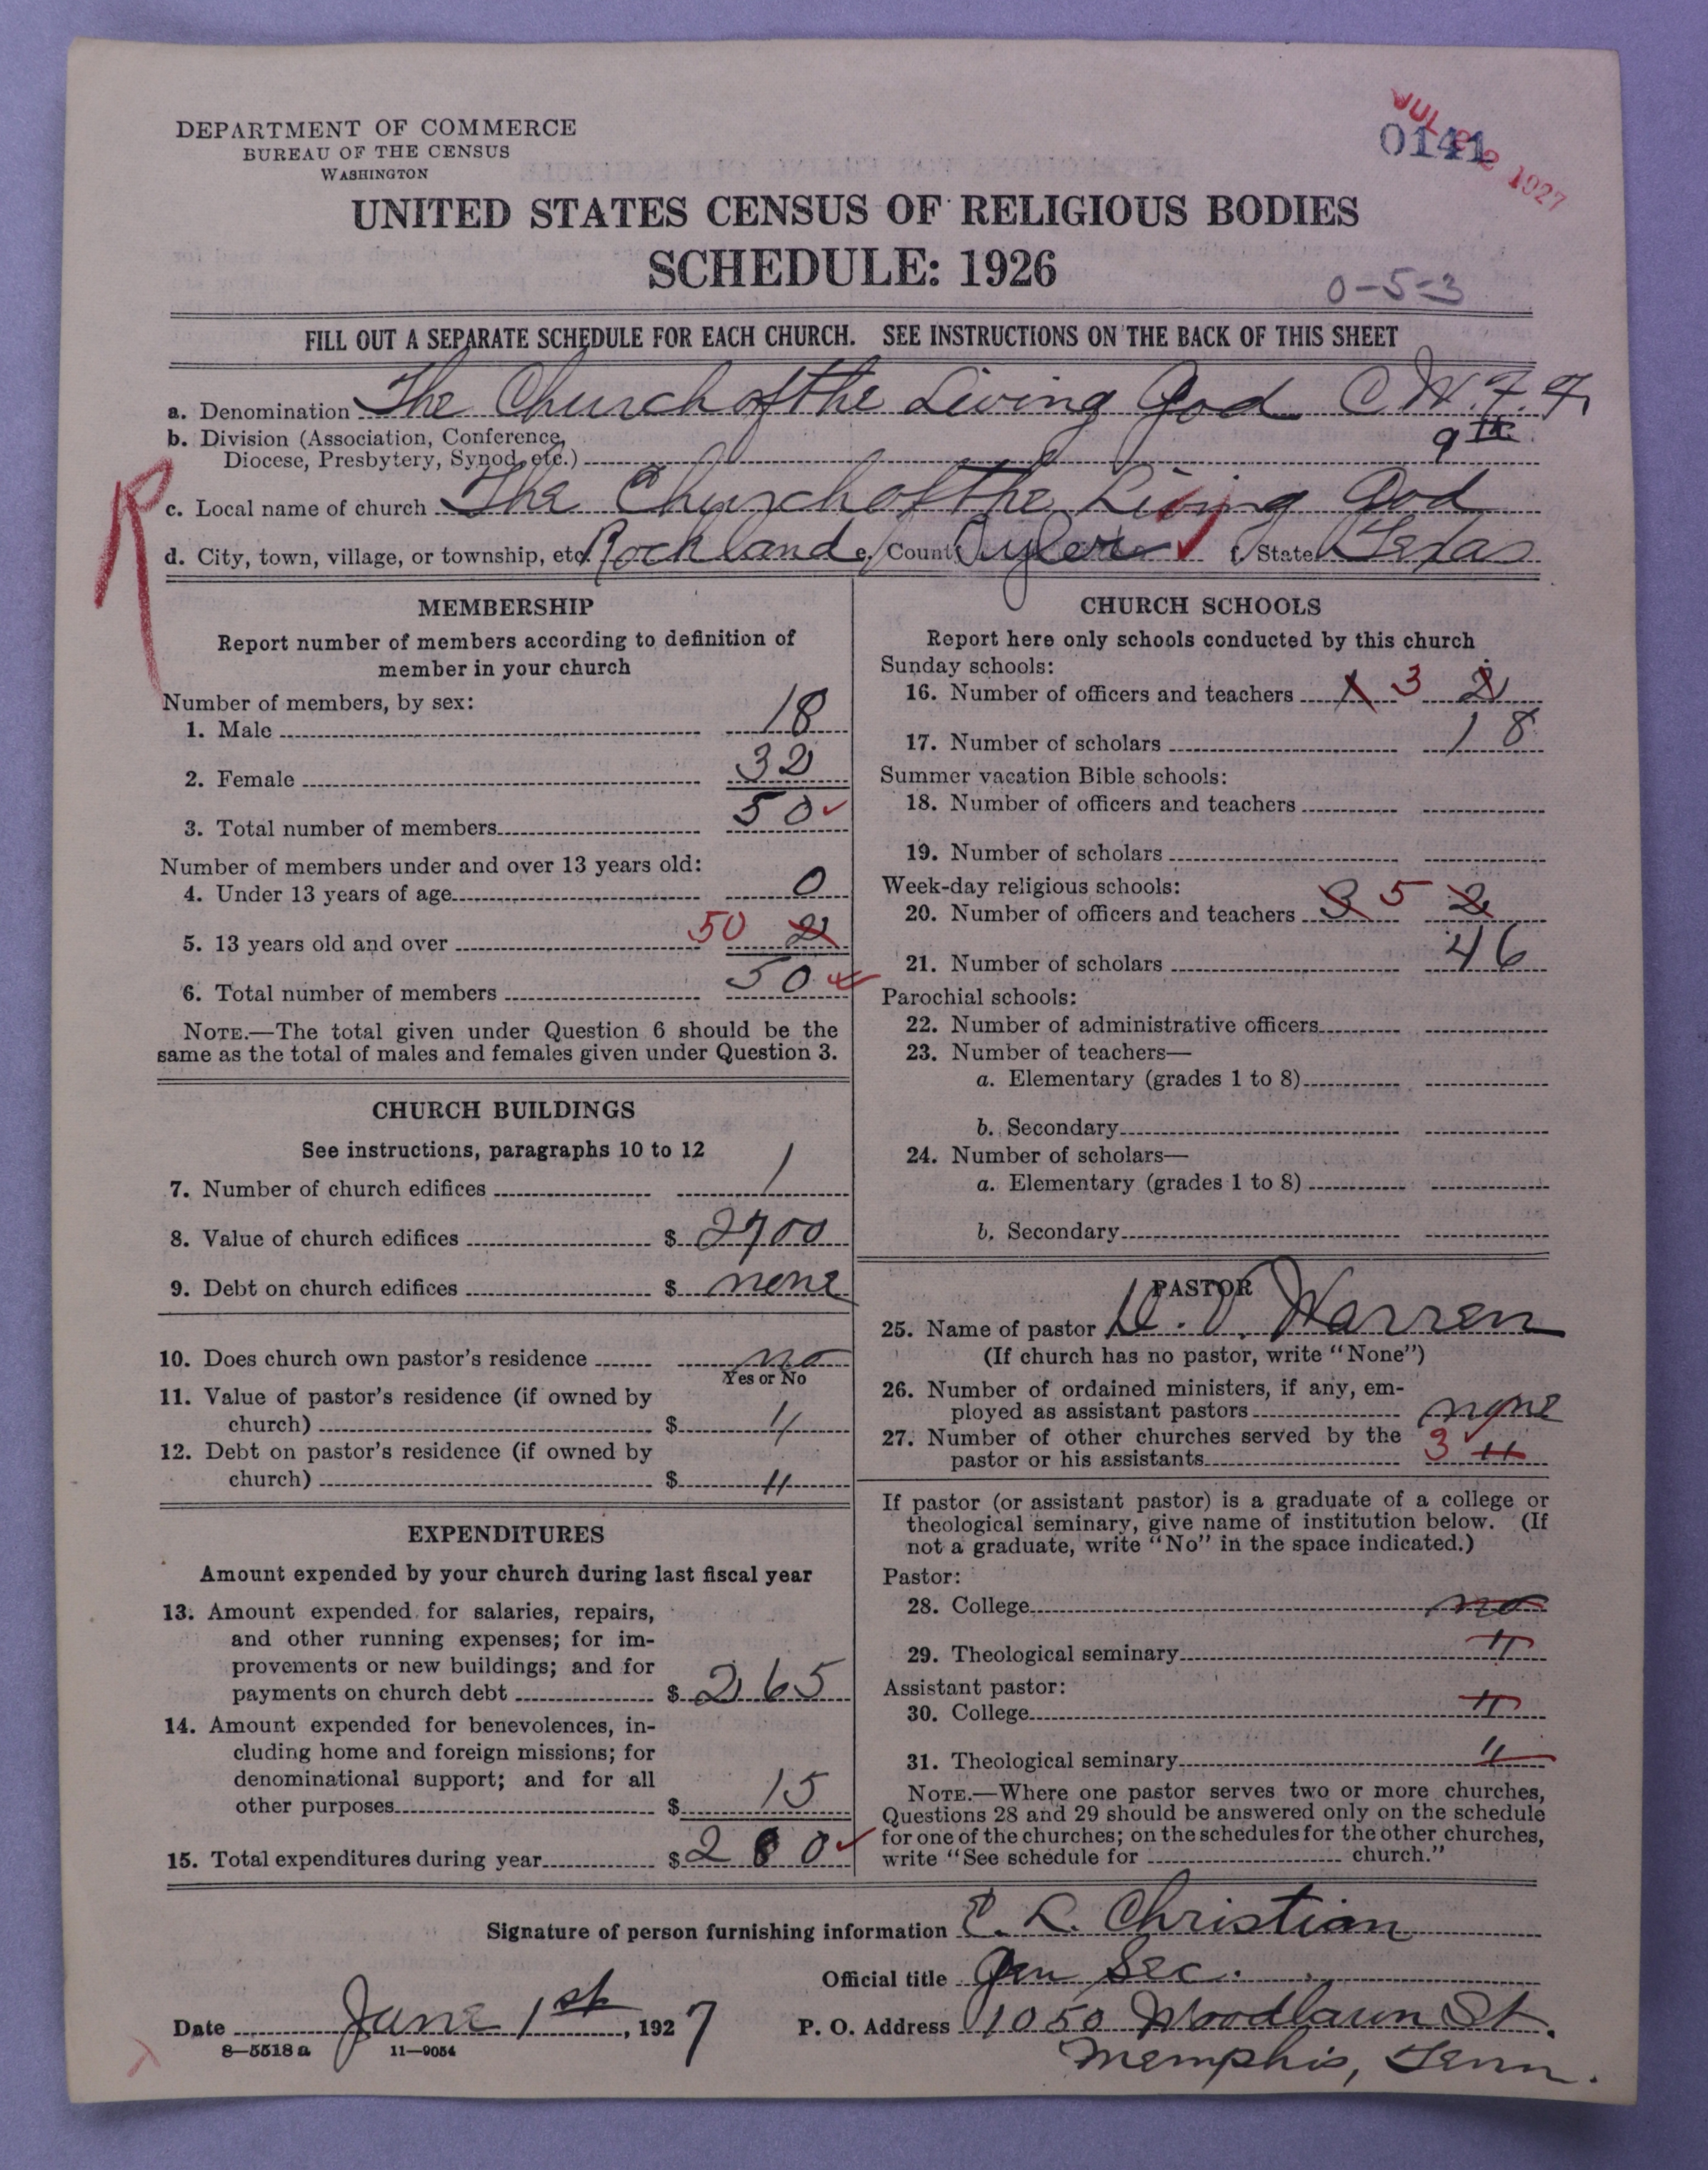 DEPARTMENT OF COMMERCE
BUREAU OF THE CENSUS
WASHINGTON
0141
JUL 22 1927
UNITED STATES CENSUS OF RELIGIOUS BODIES
SCHEDULE: 1926
0-5-3
FILL OUT A SEPARATE SCHEDULE FOR EACH CHURCH. SEE INSTRUCTIONS ON THE BACK OF THIS SHEET
a. Denomination The Church of the Living God C.W.F.F.
b. Division (Association, Conference, 9th
Diocese, Presbytery, Synod, etc.)
R
c. Local name of church The Church of the Living God
d. City, town, village, or township, etc. Rockland e. County Tyler ✓ f. State Texas
MEMBERSHIP
Report number of members according to definition of
member in your church
Number of members, by sex:
1. Male 18
2. Female 32
3. Total number of members 50 ✓
Number of members under and over 13 years old:
4. Under 13 years of age 0
5. 13 years old and over 50 2
6. Total number of members 50 ✓
NOTE.—The total given under Question 6 should be the
same as the total of males and females given under Question 3.
CHURCH BUILDINGS
See instructions, paragraphs 10 to 12
7. Number of church edifices 1
8. Value of church edifices $ 2700
9. Debt on church edifices $ none
10. Does church own pastor's residence no
Yes or No
11. Value of pastor's residence (if owned by
church) $ "
12. Debt on pastor's residence (if owned by
church) $ "
EXPENDITURES
Amount expended by your church during last fiscal year
13. Amount expended for salaries, repairs,
and other running expenses; for im-
provements or new buildings; and for
payments on church debt $ 265
14. Amount expended for benevolences, in-
cluding home and foreign missions; for
denominational support; and for all
other purposes $ 15
15. Total expenditures during year $ 280 ✓
CHURCH SCHOOLS
Report here only schools conducted by this church
Sunday schools:
16. Number of officers and teachers 1 3 2
17. Number of scholars 18
Summer vacation Bible schools:
18. Number of officers and teachers
19. Number of scholars
Week-day religious schools:
20. Number of officers and teachers 3 5 2
21. Number of scholars 46
Parochial schools:
22. Number of administrative officers
23. Number of teachers—
a. Elementary (grades 1 to 8)
b. Secondary
24. Number of scholars—
a. Elementary (grades 1 to 8)
b. Secondary
PASTOR
25. Name of pastor D. V. Warren
(If church has no pastor, write "None")
26. Number of ordained ministers, if any, em-
ployed as assistant pastors none
27. Number of other churches served by the
pastor or his assistants 3 "
If pastor (or assistant pastor) is a graduate of a college or
theological seminary, give name of institution below. (If
not a graduate, write "No" in the space indicated.)
Pastor:
28. College no
29. Theological seminary "
Assistant pastor:
30. College "
31. Theological seminary "
NOTE.—Where one pastor serves two or more churches,
Questions 28 and 29 should be answered only on the schedule
for one of the churches; on the schedules for the other churches,
write "See schedule for church."
Signature of person furnishing information E. L. Christian
Official title Gen Sec.
Date June 1st, 1927
P. O. Address 1050 Woodlawn St.
Memphis, Tenn.
8—5518 a 11—9054